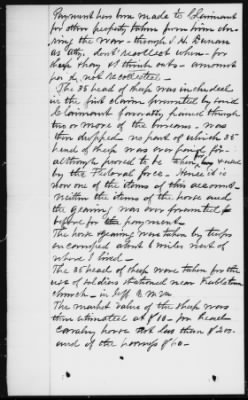 Payment has been made to Claimant
for other property taken from him
ing the war - through J. H. Benson
as atty, dont recollect when - for
sheep hay & think oats - amount
pd &, not recollected -
The 35 head of sheep was included
in the first claim presented by
Claimant formally passed through
two or more of the bureaus - was
then dropped, no part of which 35
head of sheep was ever paid for -
although proved to be taken & used
by the Federal force - Hence it is
now one of the items of this account -
neither the items of the horse and
the gearing was ever presented
before for the payment
The horse gearing was taken by troops
encamped about 6 miles west of
where I lived -
The 35 head of sheep were taken for the
use of soldiers stationed near
church - in
The market value of the sheep was
then estimated at $10 - per head
Cavalry horse not less than $200.
and of the